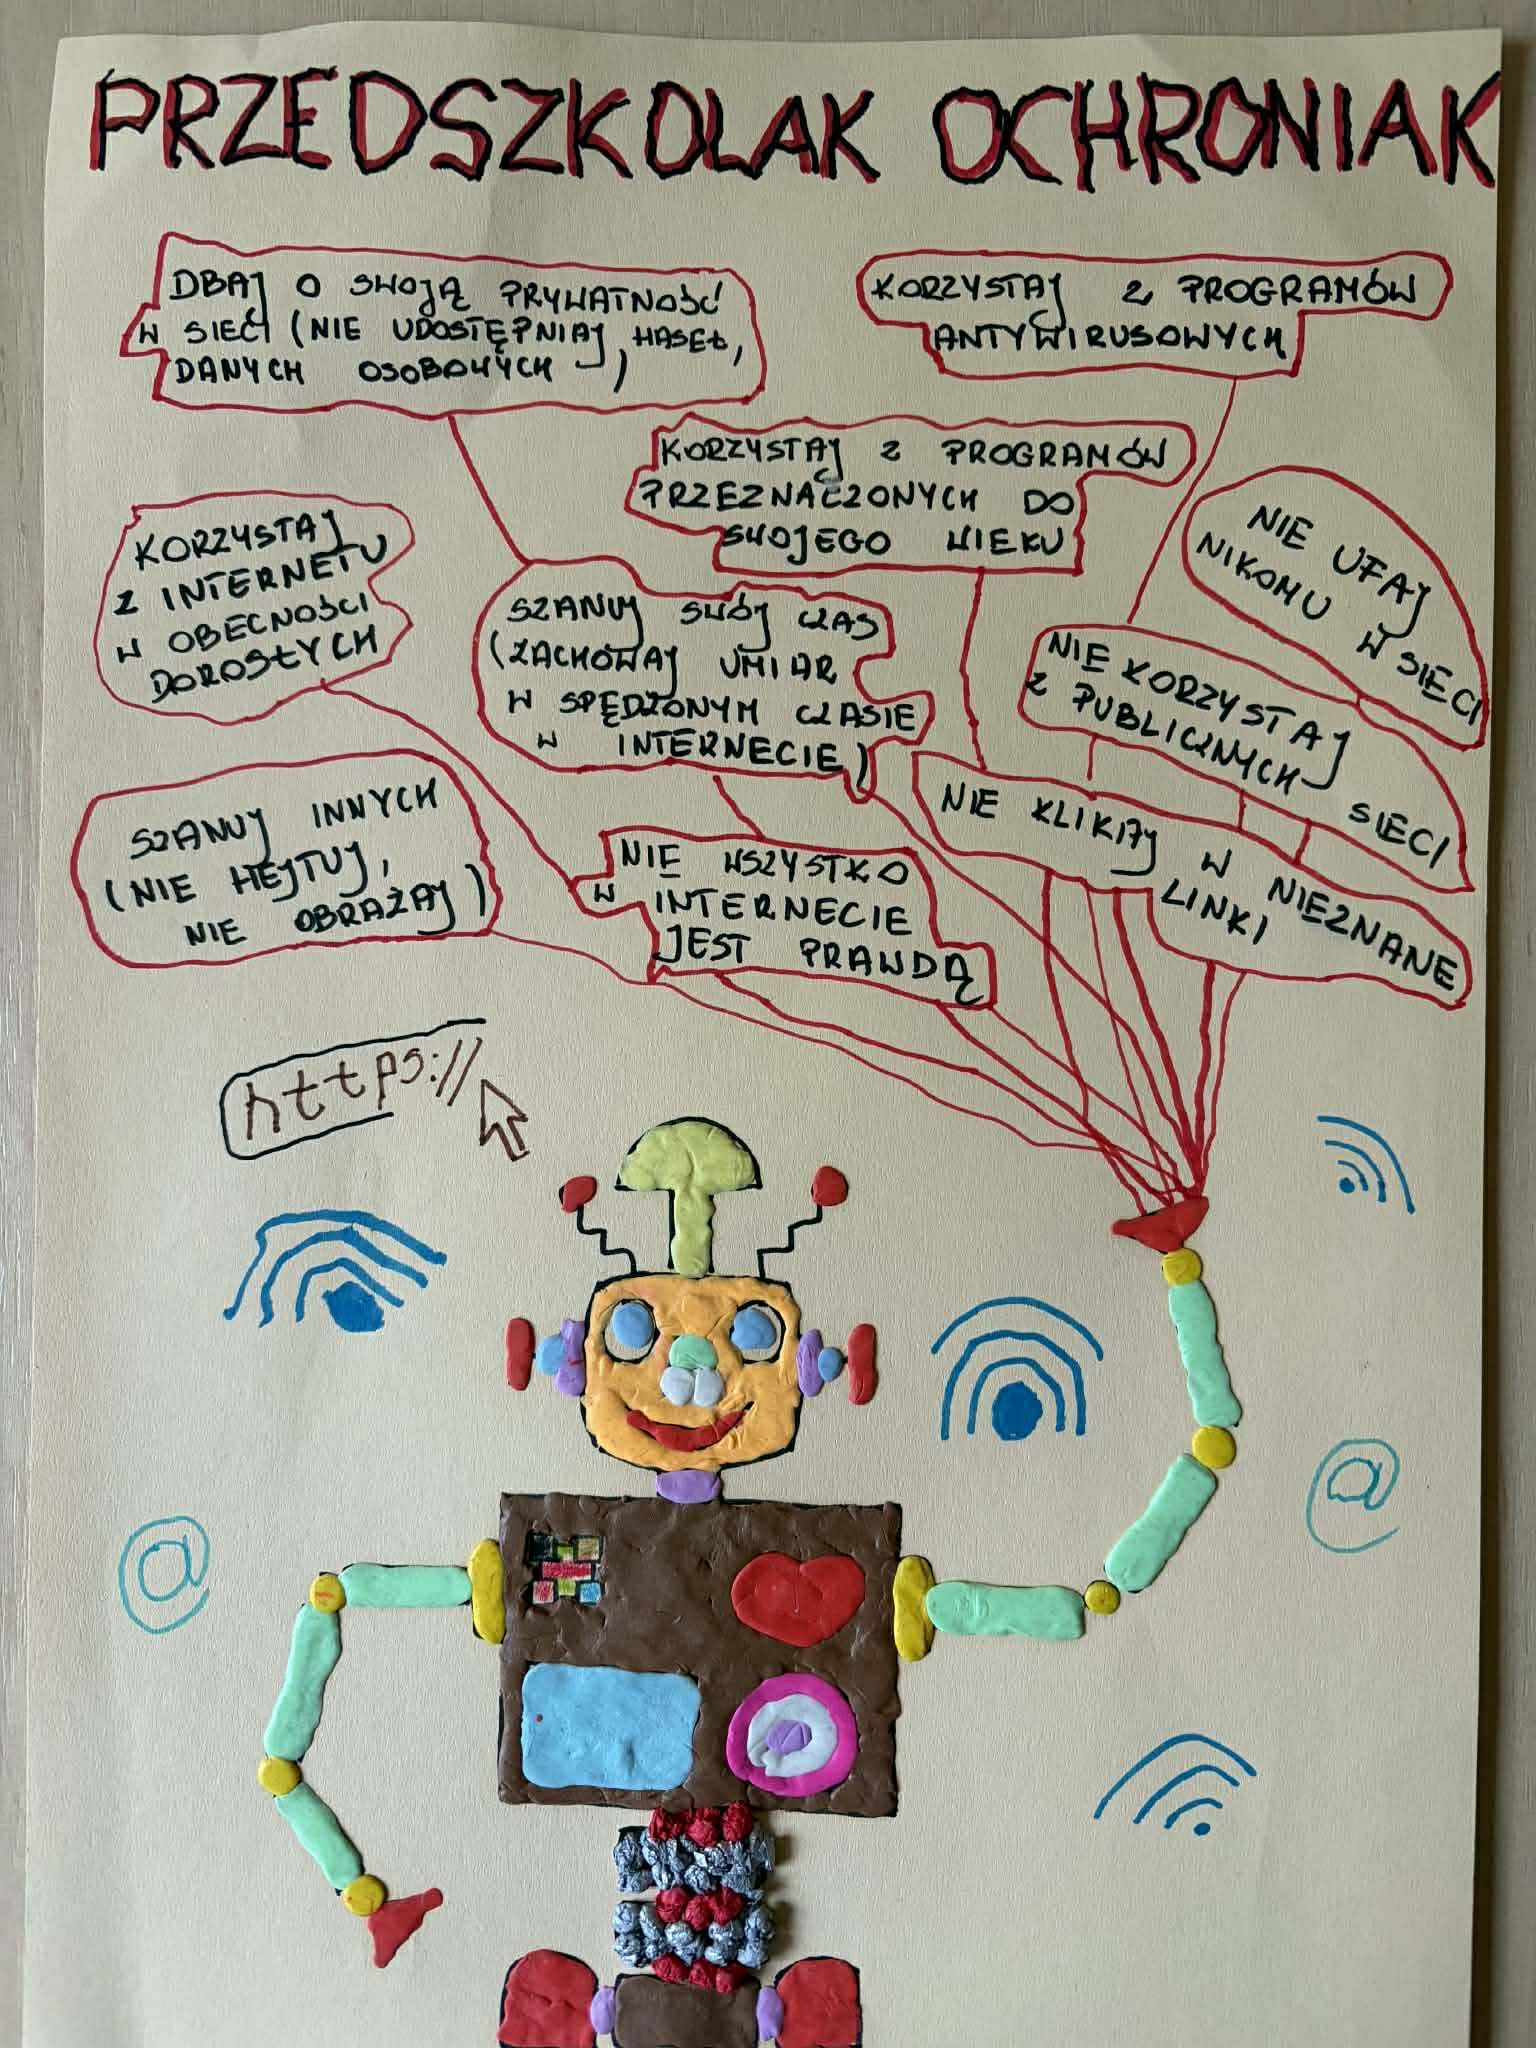 PRZEDSZKOLAK OCHRONIAK
DBAJ O SWOJĄ PRYWATNOŚĆ
W SIECI (NIE UDOSTĘPNIAJ HASEŁ,
DANYCH OSOBOWYCH)
KORZYSTAJ Z PROGRAMÓW
ANTYWIRUSOWYCH
KORZYSTAJ Z PROGRAMÓW
PRZEZNACZONYCH DO
SWOJEGO WIEKU
KORZYSTAJ
Z INTERNETU
W OBECNOŚCI
DOROSŁYCH
SZANUJ SWÓJ CZAS
(ZACHOWAJ UMIAR
W SPĘDZONYM CZASIE
W INTERNECIE)
NIE UFAJ
NIKOMU W SIECI
NIE KORZYSTAJ
Z PUBLICZNYCH SIECI
NIE KLIKAJ W NIEZNANE
LINKI
SZANUJ INNYCH
(NIE HEJTUJ,
NIE OBRAŻAJ)
NIE WSZYSTKO
W INTERNECIE
JEST PRAWDĄ
https://
@
@